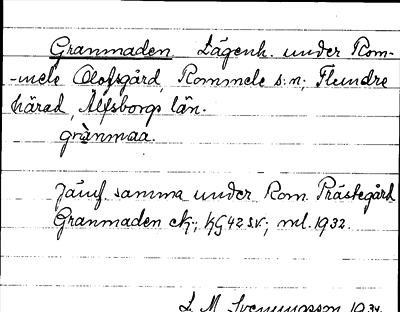 Granmaden. Lägenh. under Rom-
-mele Olofsgård, Rommele s:n; Flundre
härad, Älfsborgs län.
grànmaa.
Jämf. samma under Rom. Prästegård
Granmaden ek.; KG 42 SV; ml. 1932.
L. M. Svenungsson 1934.